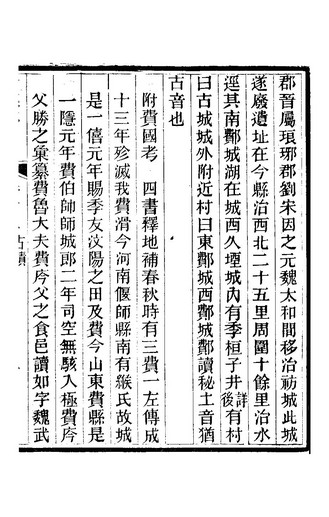 郡晉屬琅琊郡劉宋因之元魏太和間移治祊城此城
遂廢遺址在今縣治西北二十五里周圍十餘里治水
逕其南酇城湖在城西久堙城內有季桓子井詳後有村
曰古城城外附近村曰東酇城西酇城酇讀秘土音猶
古音也
附費國考 四書釋地補春秋時有三費一左傳成
十三年殄滅我費滑今河南偃師縣南有緱氏故城
是一僖元年賜季友汶陽之田及費今山東費縣是
一隱元年費伯帥師城郎二年司空無駭入極費庈
父勝之彙纂費魯大夫費庈父之食邑讀如字魏武
古蹟